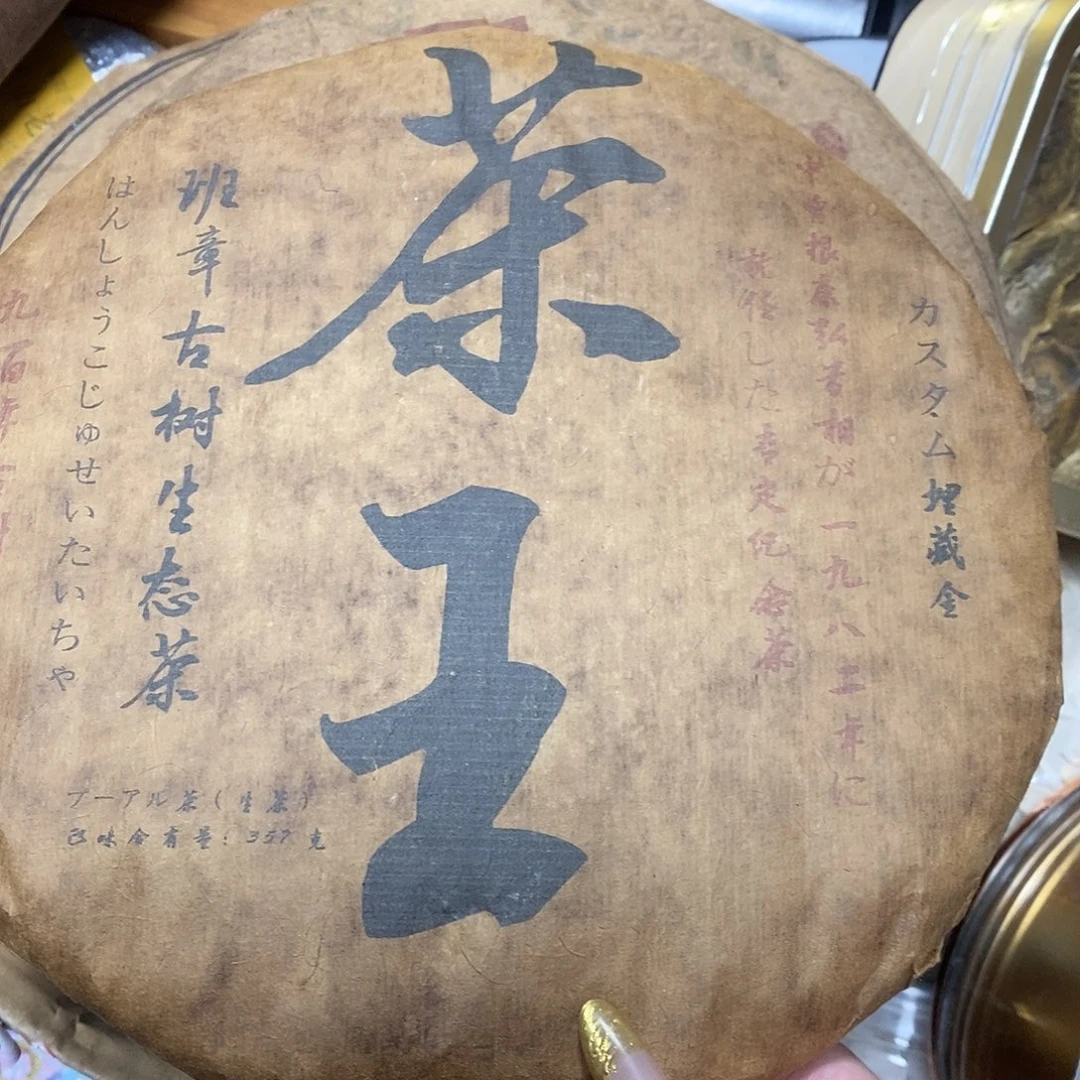 カスタム埋藏金
中曽根康弘首相が一九八二年に
就任した定紀念茶
茶王
班章古树生态茶
はんしょうこじゅせいたいちゃ
プーアル茶(生茶)
正味含有量:357克
九百年古树